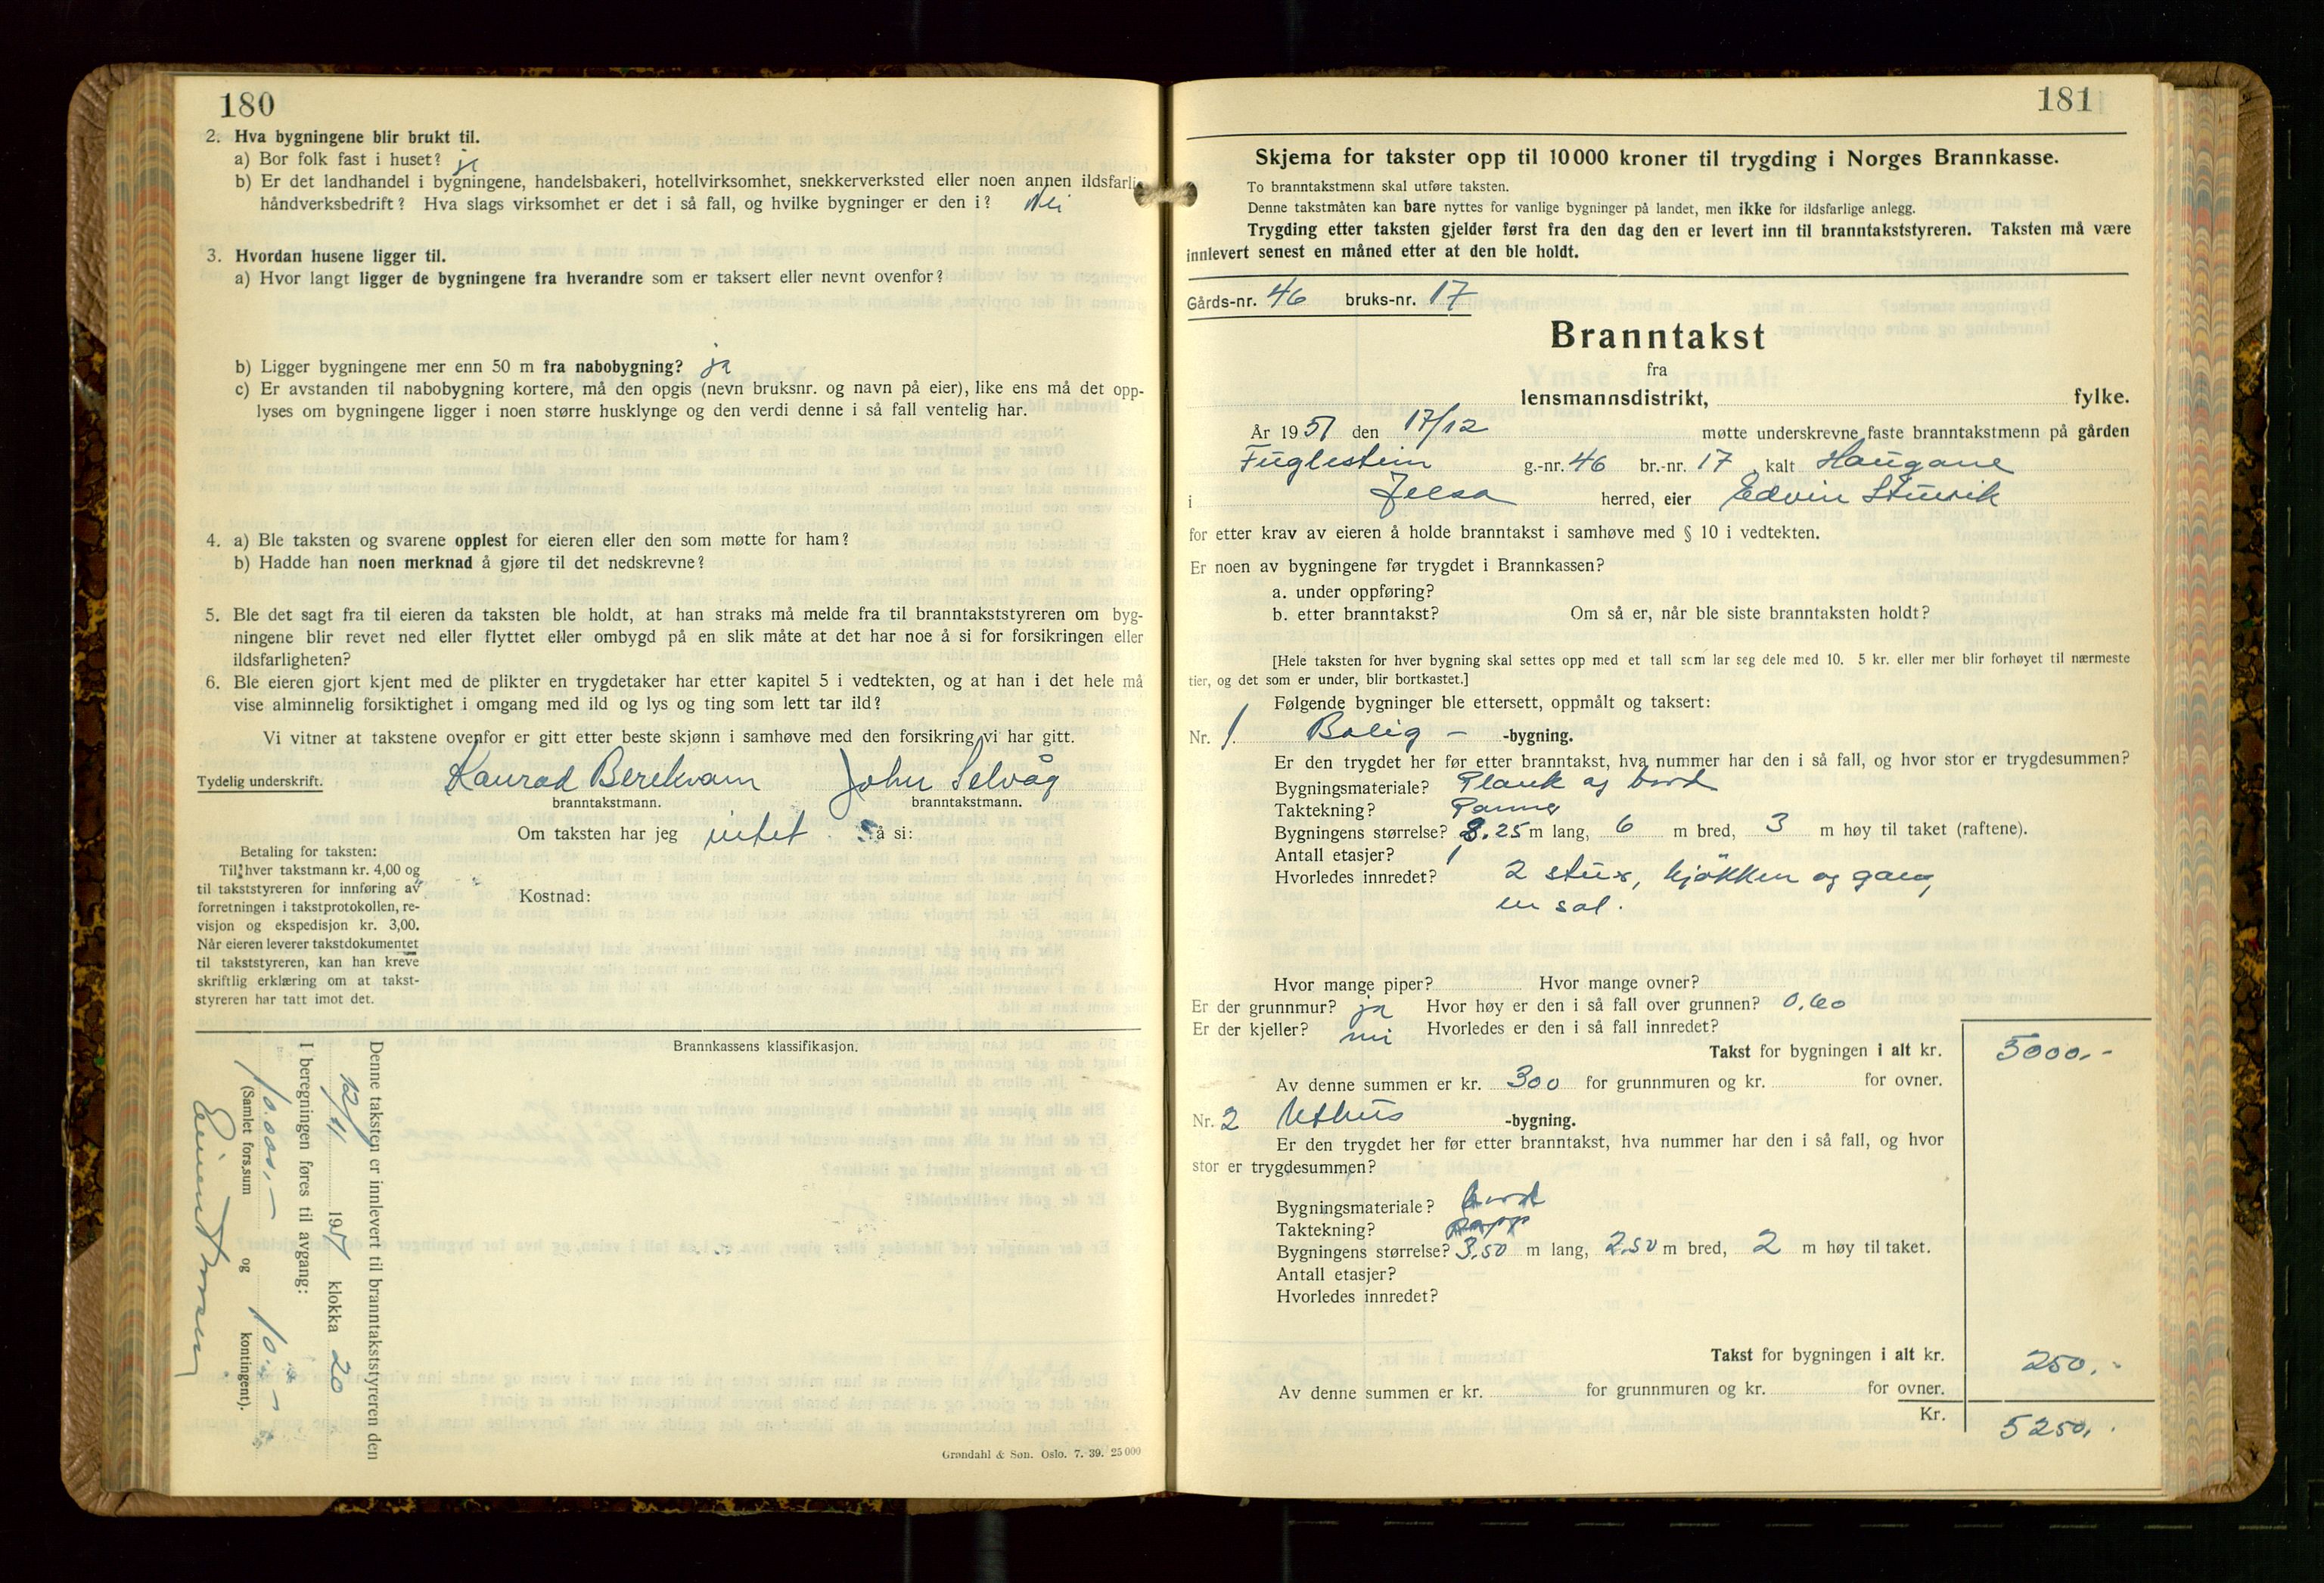 180
2. Hva bygningene blir brukt til.
a) Bor folk fast i huset? ja
b) Er det landhandel i bygningene, handelsbakeri, hotellvirksomhet, snekkerverksted eller noen annen ildsfarlig
håndverksbedrift? Hva slags virksomhet er det i så fall, og hvilke bygninger er den i? Nei
3. Hvordan husene ligger til.
a) Hvor langt ligger de bygningene fra hverandre som er taksert eller nevnt ovenfor?
b) Ligger bygningene mer enn 50 m fra nabobygning? ja
c) Er avstanden til nabobygning kortere, må den opgis (nevn bruksnr. og navn på eier), like ens må det opp-
lyses om bygningene ligger i noen større husklynge og den verdi denne i så fall ventelig har.
4. a) Ble taksten og svarene opplest for eieren eller den som møtte for ham?
b) Hadde han noen merknad å gjøre til det nedskrevne?
5. Ble det sagt fra til eieren da taksten ble holdt, at han straks må melde fra til branntakststyreren om byg-
ningene blir revet ned eller flyttet eller ombygd på en slik måte at det har noe å si for forsikringen eller
ildsfarligheten?
6. Ble eieren gjort kjent med de plikter en trygdetaker har etter kapitel 5 i vedtekten, og at han i det hele må
vise alminnelig forsiktighet i omgang med ild og lys og ting som lett tar ild?
Vi vitner at takstene ovenfor er gitt etter beste skjønn i samhøve med den forsikring vi har gitt.
Tydelig underskrift. Konrad Berekvam John Selvåg
branntakstmann. branntakstmann.
Om taksten har jeg intet å si:
Betaling for taksten:
Til hver takstmann kr. 4,00 og
til takststyreren for innføring av
forretningen i takstprotokollen, re-
visjon og ekspedisjon kr. 3,00.
Når eieren leverer takstdokumentet
til takststyreren, kan han kreve
skriftlig erklæring om at takst-
styreren har tatt imot det.
Kostnad:
Brannkassens klassifikasjon.
Denne taksten er innlevert til branntakststyreren den
12/11 19 klokka 20
I beregningen føres til avgang:
10.000,- og 10.-
(Samlet fors.sum kontingent).
Grøndahl & Søn. Oslo. 7. 39. 25 000
181
Skjema for takster opp til 10 000 kroner til trygding i Norges Brannkasse.
To branntakstmenn skal utføre taksten.
Denne takstmåten kan bare nyttes for vanlige bygninger på landet, men ikke for ildsfarlige anlegg.
Trygding etter taksten gjelder først fra den dag den er levert inn til branntakststyreren. Taksten må være
innlevert senest en måned etter at den ble holdt.
Gårds-nr. 46 bruks-nr. 17
Branntakst
fra
lensmannsdistrikt, fylke.
År 1951 den 17/12 møtte underskrevne faste branntakstmenn på gården
Fuglestein g.-nr. 46 br.-nr. 17 kalt Haugane
i Jelsa herred, eier Edvin
for etter krav av eieren å holde branntakst i samhøve med § 10 i vedtekten.
Er noen av bygningene før trygdet i Brannkassen?
a. under oppføring?
b. etter branntakst? Om så er, når ble siste branntaksten holdt?
[Hele taksten for hver bygning skal settes opp med et tall som lar seg dele med 10. 5 kr. eller mer blir forhøyet til nærmeste
tier, og det som er under, blir bortkastet.]
Følgende bygninger ble ettersett, oppmålt og taksert:
Nr. 1. Bolig - -bygning.
Er den trygdet her før etter branntakst, hva nummer har den i så fall, og hvor stor er trygdesummen?
Bygningsmateriale? Plank og bord
Taktekning? Panner
Bygningens størrelse? 8.25 m lang, 6 m bred, 3 m høy til taket (raftene).
Antall etasjer? 1
Hvorledes innredet? 2 stuer, kjøkken og gang,
en sal.
Hvor mange piper? Hvor mange ovner?
Er der grunnmur? ja Hvor høy er den i så fall over grunnen? 0.60
Er der kjeller? nei Hvorledes er den i så fall innredet?
Takst for bygningen i alt kr. 5000.-
Av denne summen er kr. 300 for grunnmuren og kr. for ovner.
Nr. 2 Uthus -bygning.
Er den trygdet her før etter branntakst, hva nummer har den i så fall, og hvor
stor er trygdesummen?
Bygningsmateriale? bord
Taktekning? papp
Bygningens størrelse? 3.50 m lang, 2.50 m bred, 2 m høy til taket.
Antall etasjer?
Hvorledes innredet?
Takst for bygningen i alt kr. 250.-
Av denne summen er kr. for grunnmuren og kr. for ovner.
Kr. 5250.-